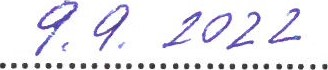 9.9. 2022